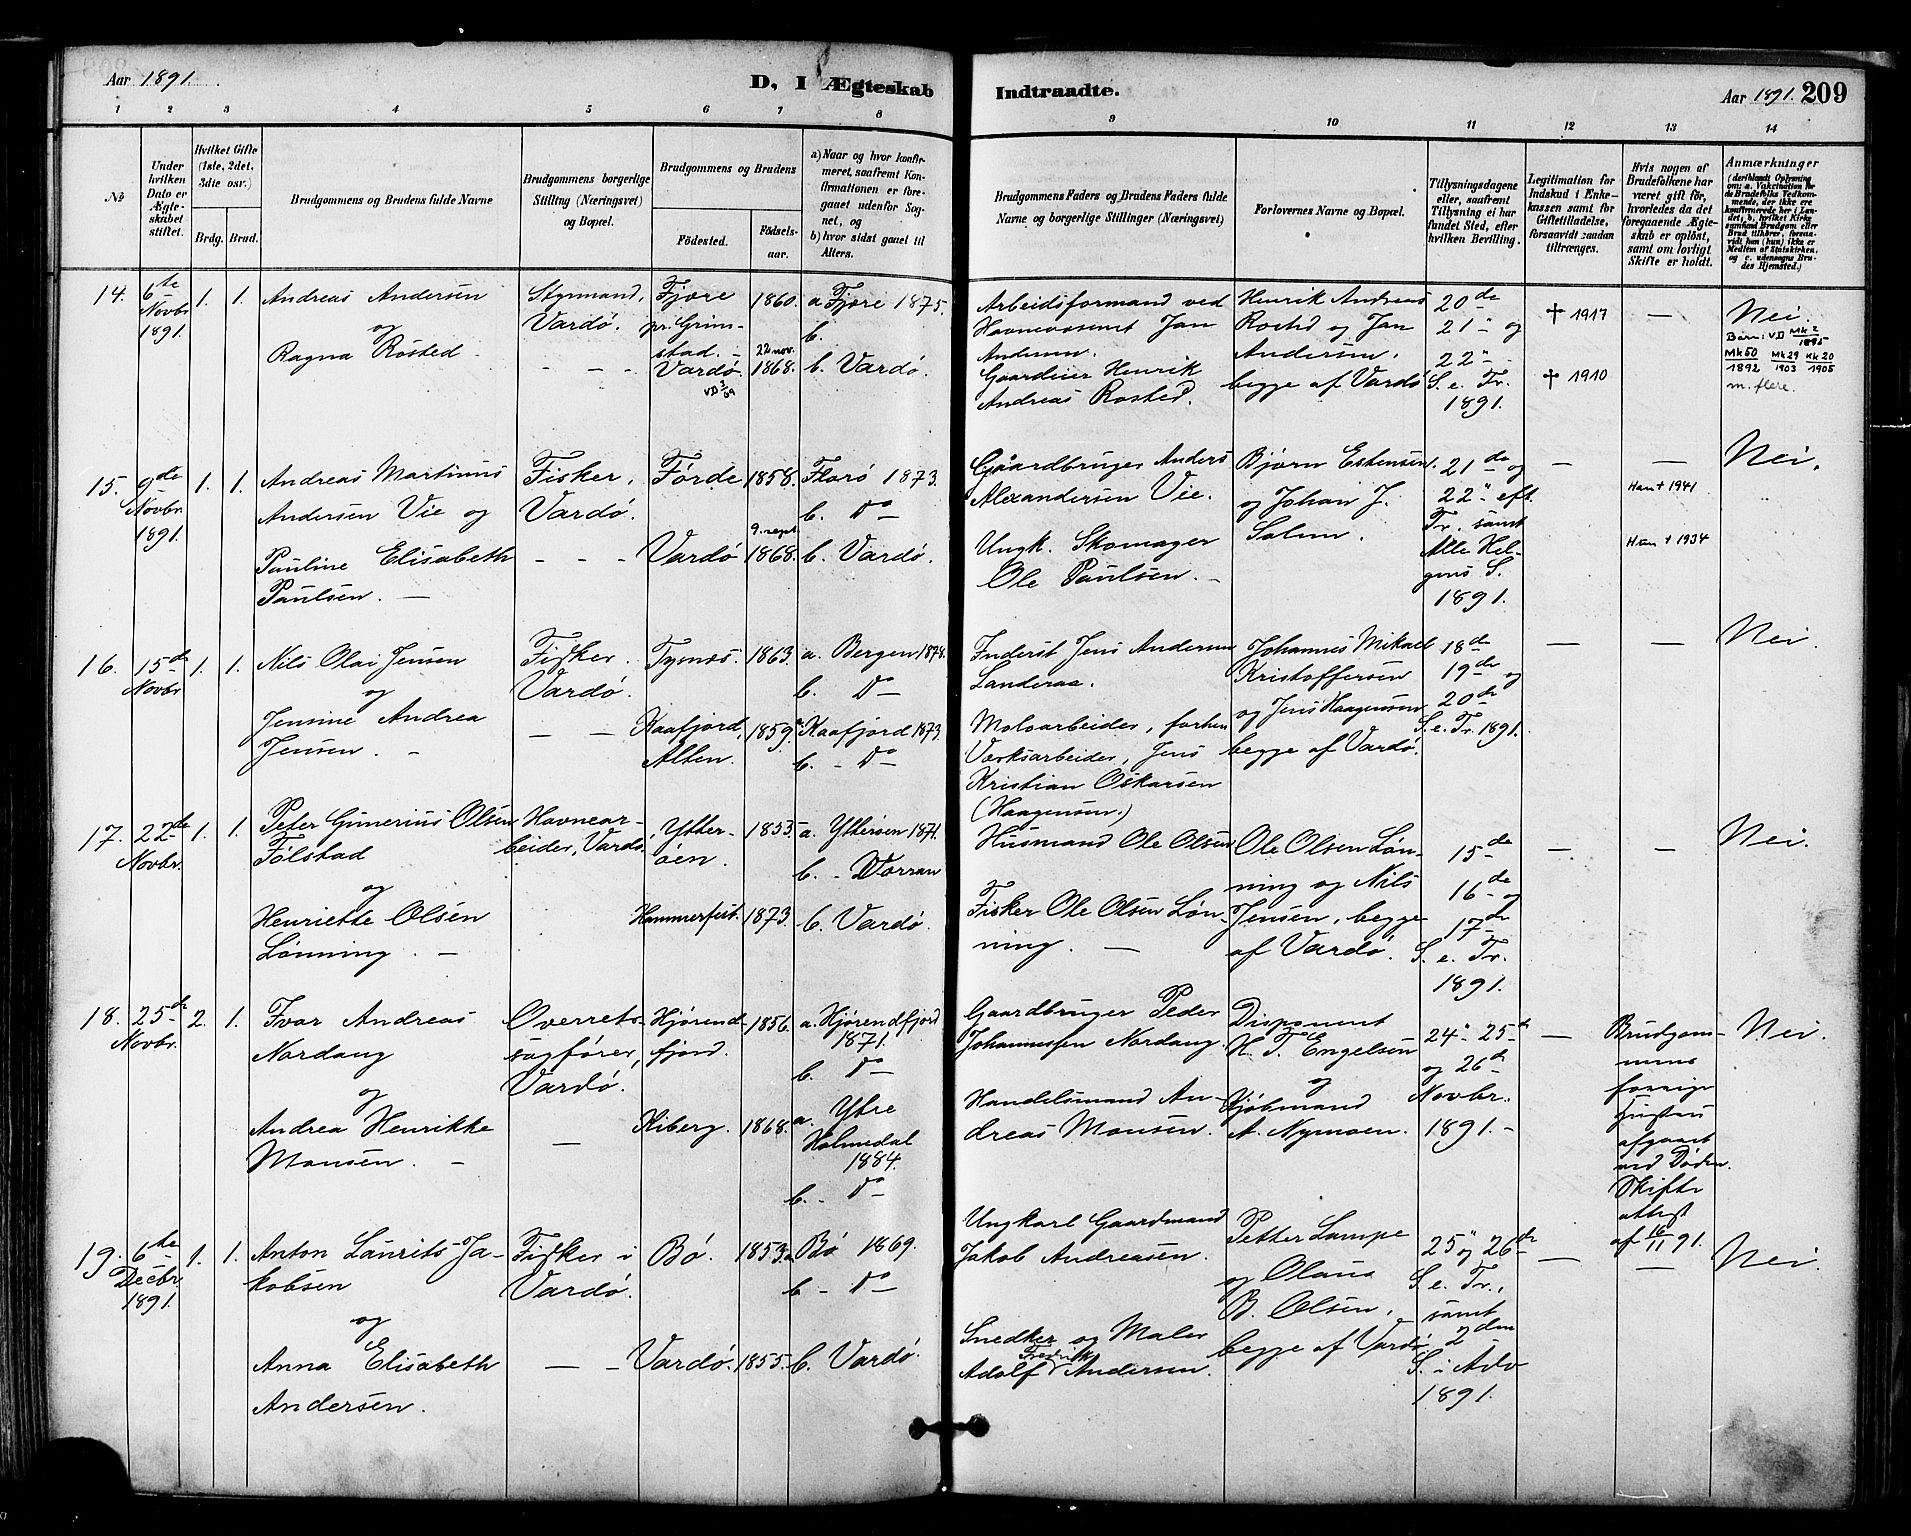 Aar 1891.
D, I Ægteskab
Indtraadte.
Aar 1891. 209
1 2 3 4 5 6 7 8 9 10 11 12 13 14
No
Under hvilken Dato er Ægteskabet stiftet.
Hvilket Gifte (1ste, 2det, 3die osv.)
Brdg. Brud.
Brudgommens og Brudens fulde Navne
Brudgommens borgerlige Stilling (Næringsvei) og Bopæl.
Brudgommens og Brudens
Fødested.
Fødselsaar.
a) Naar og hvor konfirmeret, saafremt Konfirmationen er foregaaet udenfor Sognet, og
b) hvor sidst gaaet til Alters.
Brudgommens Faders og Brudens Faders fulde Navne og borgerlige Stillinger (Næringsvei)
Forlovernes Navne og Bopæl.
Tillysningsdagene eller, saafremt Tillysning ei har fundet Sted, efter hvilken Bevilling.
Legitimation for Indskud i Enkekassen samt for Giftetilladelse, forsaavidt saadan tiltrænges.
Hvis nogen af Brudefolkene har været gift før, hvorledes da det foregaaende Ægteskab er opløst, samt om lovligt Skifte er holdt.
Anmærkninger (deriblandt Oplysning om: a. Vakcination for de Brudefolks Vedkommende, der ikke ere konfirmerede her i Landet; b. hvilket Kirkesamfund Brudgom eller Brud tilhører, forsaavidt han (hun) ikke er Medlem af Statskirken, og c. udensogns Brudes Hjemsted.)
14. 6te Novbr 1891. 1. 1.
Andreas Andersen
og
Ragna Rosted
Styrmand, Vardø.
Fjære pr. Grimstad. 1860. a. Fjære 1875.
b.
Vardø. VD 3/69 22 nov. 1868. b. Vardø.
Arbeidsformand ved Havnevæsenet Jan Andersen.
Gaardeier Henrik Andreas Rosted.
Henrik Andreas Rosted og Jan Andersen, begge af Vardø
20de 21" og 22" S. e. Tr. 1891.
† 1917
† 1910
—
Nei.
Barn: VD Mk 2 1895
Mk 50 1892 Mk 29 1903 Kk 20 1905
m. flere.
15. 9de Novbr. 1891. 1. 1.
Andreas Martinus
Andersen Vie og
Pauline Elisabeth
Paulsen. —
Fisker, Vardø.
Førde 1858. Florø 1873.
b. Do
Vardø 9. sept 1868. b. Vardø.
Gaardbruger Anders Alexandersen Vie.
Ungk. Skomager Ole Paulsen. —
Bjørn Estensen og Johan J. Salem.
21de og 22" eft. Tr. samt Alle Helgens S. 1891.
—
—
Han † 1941
Hun † 1934
Nei.
16. 15de Novbr. 1. 1.
Nils Olai Jensen
og
Jensine Andrea
Jensen. —
Fisker. Vardø.
Tysnes. 1863. a. Bergen 1878.
b. Do
Kaafjord, Alten. 1859. a. Kaafjord 1873.
b. - Do
Inderst Jens Andersen Landeraa.
Moloarbeider, forhen Værksarbeider, Jens Kristian Oskarsen (Haagensen.)
Johannes Mikael Kristoffersen og Jens Haagensen begge af Vardø.
18de 19de og 20de S. e. Tr. 1891.
—
—
Nei.
17. 22de Novbr. 1. 1.
Peter Gunerius Olsen
Følstad
og
Henriette Olsen
Lønning. —
Havnearbeider, Vardø.
Ytterøen. 1853. a. Ytterøen 1871.
b. - Vorran
Hammerfest. 1873. b. Vardø.
Husmand Ole Olsen
Fisker Ole Olsen Lønning. —
Ole Olsen Lønning og Nils Jensen, begge af Vardø.
15de 16de og 17de S. e. Tr. 1891.
—
—
Nei.
18. 25de Novbr. 2. 1.
Ivar Andreas
Nordang
og
Andrea Henrikke
Monsen. —
Overretssagfører, Vardø.
Hjørendfjord. 1856. a. Hjørendfjord 1871.
b. Do
Kiberg. 1868. a. Ytre Holmedal 1884.
b. - Do
Gaardbruger Peder Johannessen Nordang.
Handelsmand Andreas Monsen.
Disponent H. T. Engelsen og Kjøbmand A. Nymoen.
24" 25de og 26de Novbr. 1891. —
—
Brudgommens forrige Hustru afgaaet ved Døden. Skifteattest af 16/11 91.
Nei.
19. 6te Decbr 1891. 1. 1.
Anton Laurits Jakobsen
og
Anna Elisabeth
Andersen.
Fisker i Vardø.
Bø. 1853. a. Bø 1869.
b - Do
Vardø. 1855. b. Vardø.
Ungkarl Gaardmand Jakob Andreasen.
Snedker og Maler Adolf Fredrik Andersen.
Petter Lampe og Olaus B. Olsen, begge af Vardø
25" og 26de S. e. Tr., samt 2den S. i Adv 1891.
—
—
Nei.